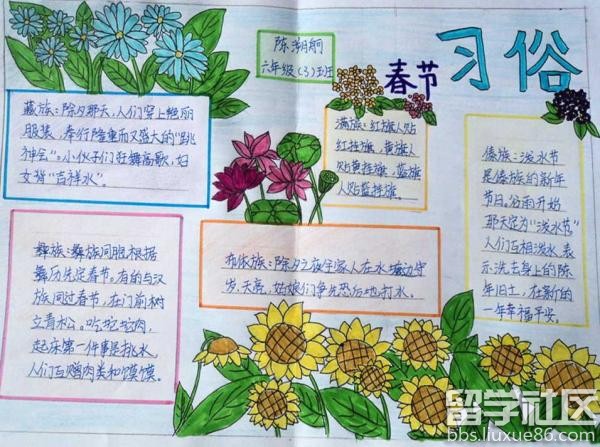 春节 习俗
六年级(3)班
藏族:除夕那天,人们穿上艳丽
服装,奉行隆重而又盛大的"跳
神会"。小伙子们狂舞高歌,妇
女背"吉祥水"。
满族:红旗人贴
红挂旗,黄旗人
贴黄挂旗,蓝旗
人贴蓝挂旗。
傣族:泼水节
是傣族的新年
节日。谷雨开始
那天定为"泼水节"
人们互相泼水,表
示洗去身上的陈
年旧土,在新的
一年幸福平安。
彝族:彝族同胞根据
彝历先定春节。有的与汉
族同过春节,在门前树
立青松。吃坨坨肉,
起床第一件事是挑水,
人们互赠肉类和馍馍。
布依族:除夕之夜全家人在水塘边守
岁,天亮,姑娘们争先恐后地打水。
留学社区
bbs.liuxue86.com